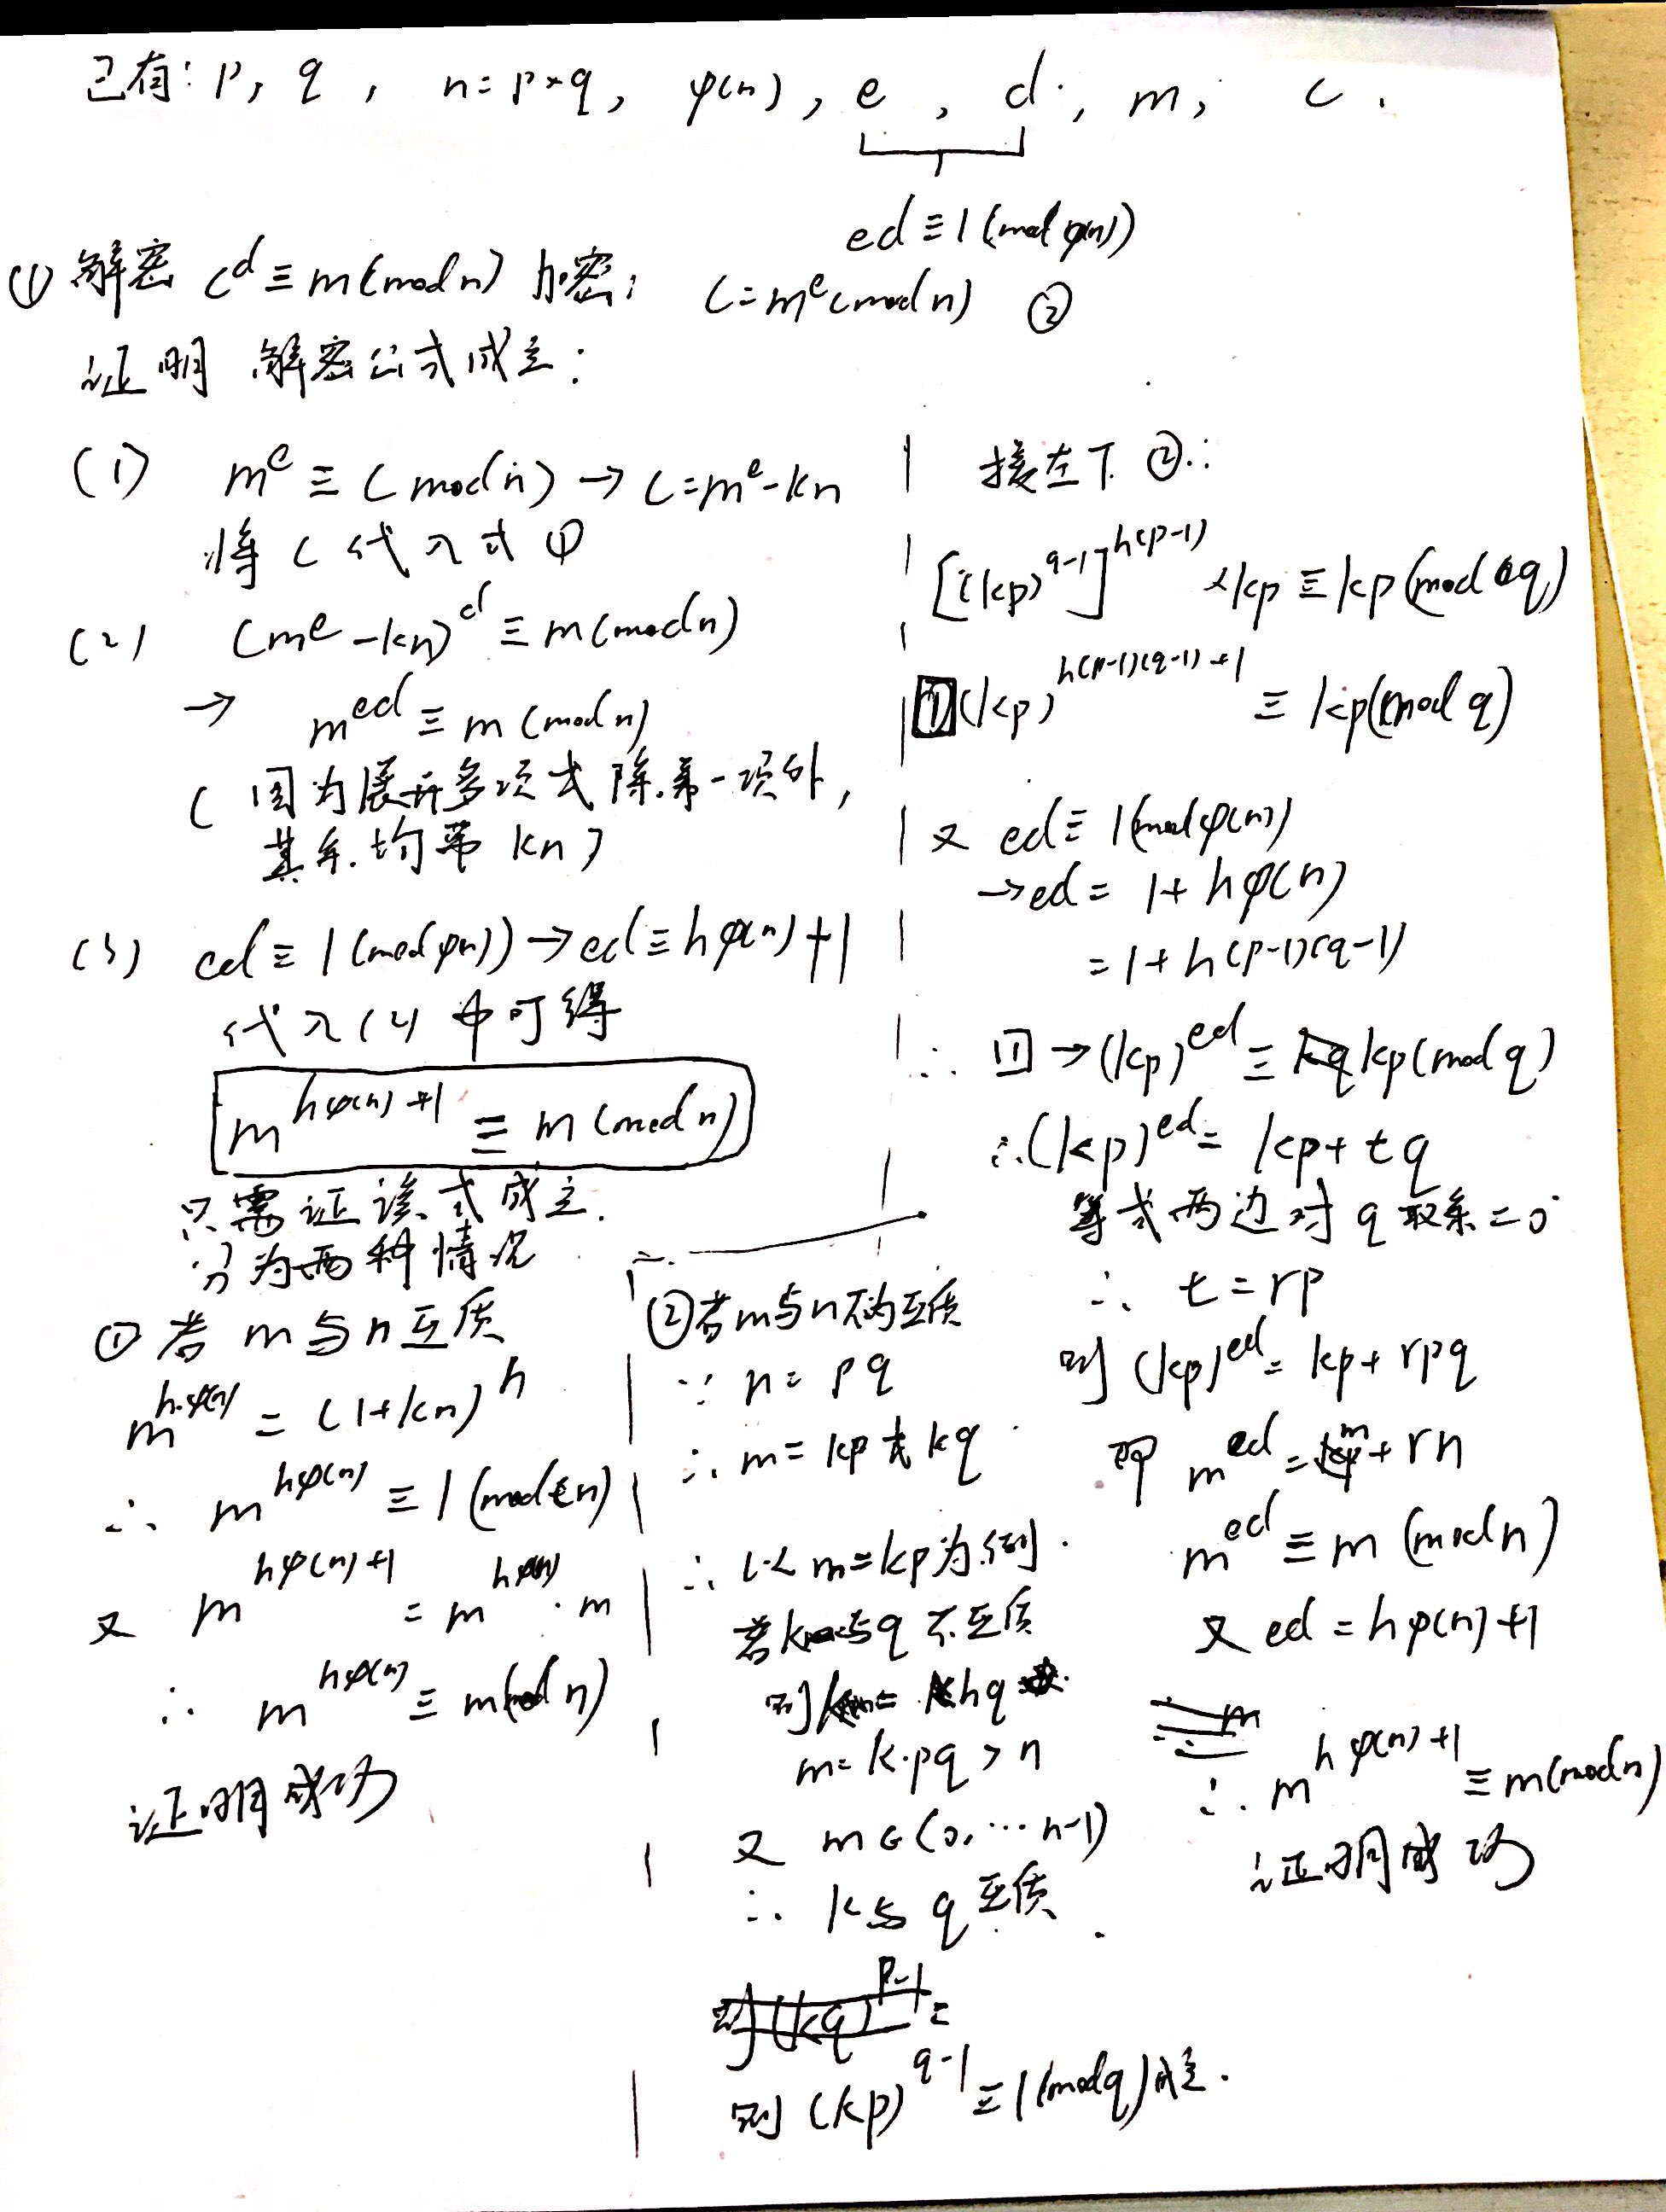 已有: p, q, n=p×q, φ(n), e, d, m, c.
ed≡1(mod φ(n))
① 解密 c^d≡m(mod n) 加密: c=m^e(mod n) ②
证明 解密公式成立:
(1) m^e≡c(mod n)→c=m^e-kn
将c代入式①
(2) (m^e-kn)^d≡m(mod n)
→ m^ed≡m(mod n)
(因为展开多项式除第一项外,
其余均带kn)
(3) ed≡1(mod φ(n))→ed≡hφ(n)+1
代入(2)中可得
m^{hφ(n)+1}≡m(mod n)
只需证该式成立.
分为两种情况
① 若m与n互质
m^{h·φ(n)}=(1+kn)^h
∴ m^{hφ(n)}≡1(mod n)
又 m^{hφ(n)+1}=m^{hφ(n)}·m
∴ m^{hφ(n)}≡m(mod n)
证明成功
②若m与n不为互质
∵ n=pq
∴ m=kp或kq
∴ 以m=kp为例.
若k与q不互质
则 hq
m=k·pq>n
又 m∈(0,…n-1)
∴ k与q互质.
则(kq)^{p-1}=
则(kp)^{q-1}≡1(mod q)成立.
接左下②:
[(kp)^{q-1}]^{h(p-1)}×kp≡kp(mod q)
[1](kp)^{h(p-1)(q-1)+1}≡kp(mod q)
又 ed≡1(mod φ(n))
→ed=1+hφ(n)
=1+h(p-1)(q-1)
∴ [1]→(kp)^ed≡kp(mod q)
∴(kp)^ed=kp+tq
等式两边对q取余=0
∴ t=rp
则(kp)^ed=kp+rpq
即 m^ed=m+rn
m^ed≡m(mod n)
又 ed=hφ(n)+1
∴ m^{hφ(n)+1}≡m(mod n)
证明成功